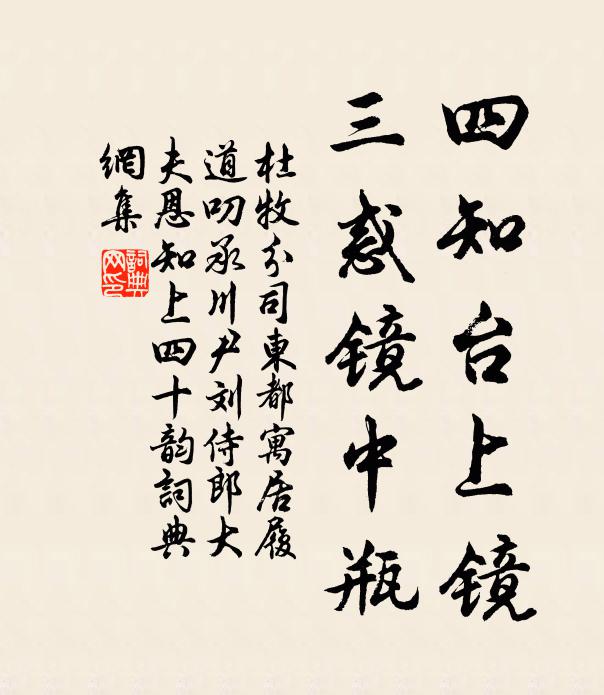 四知台上镜
三惑镜中瓶
杜牧分司東都寓居履
道叨承川尹刘侍郎大
夫恩知上四十韵詞典
網集
詞典網印